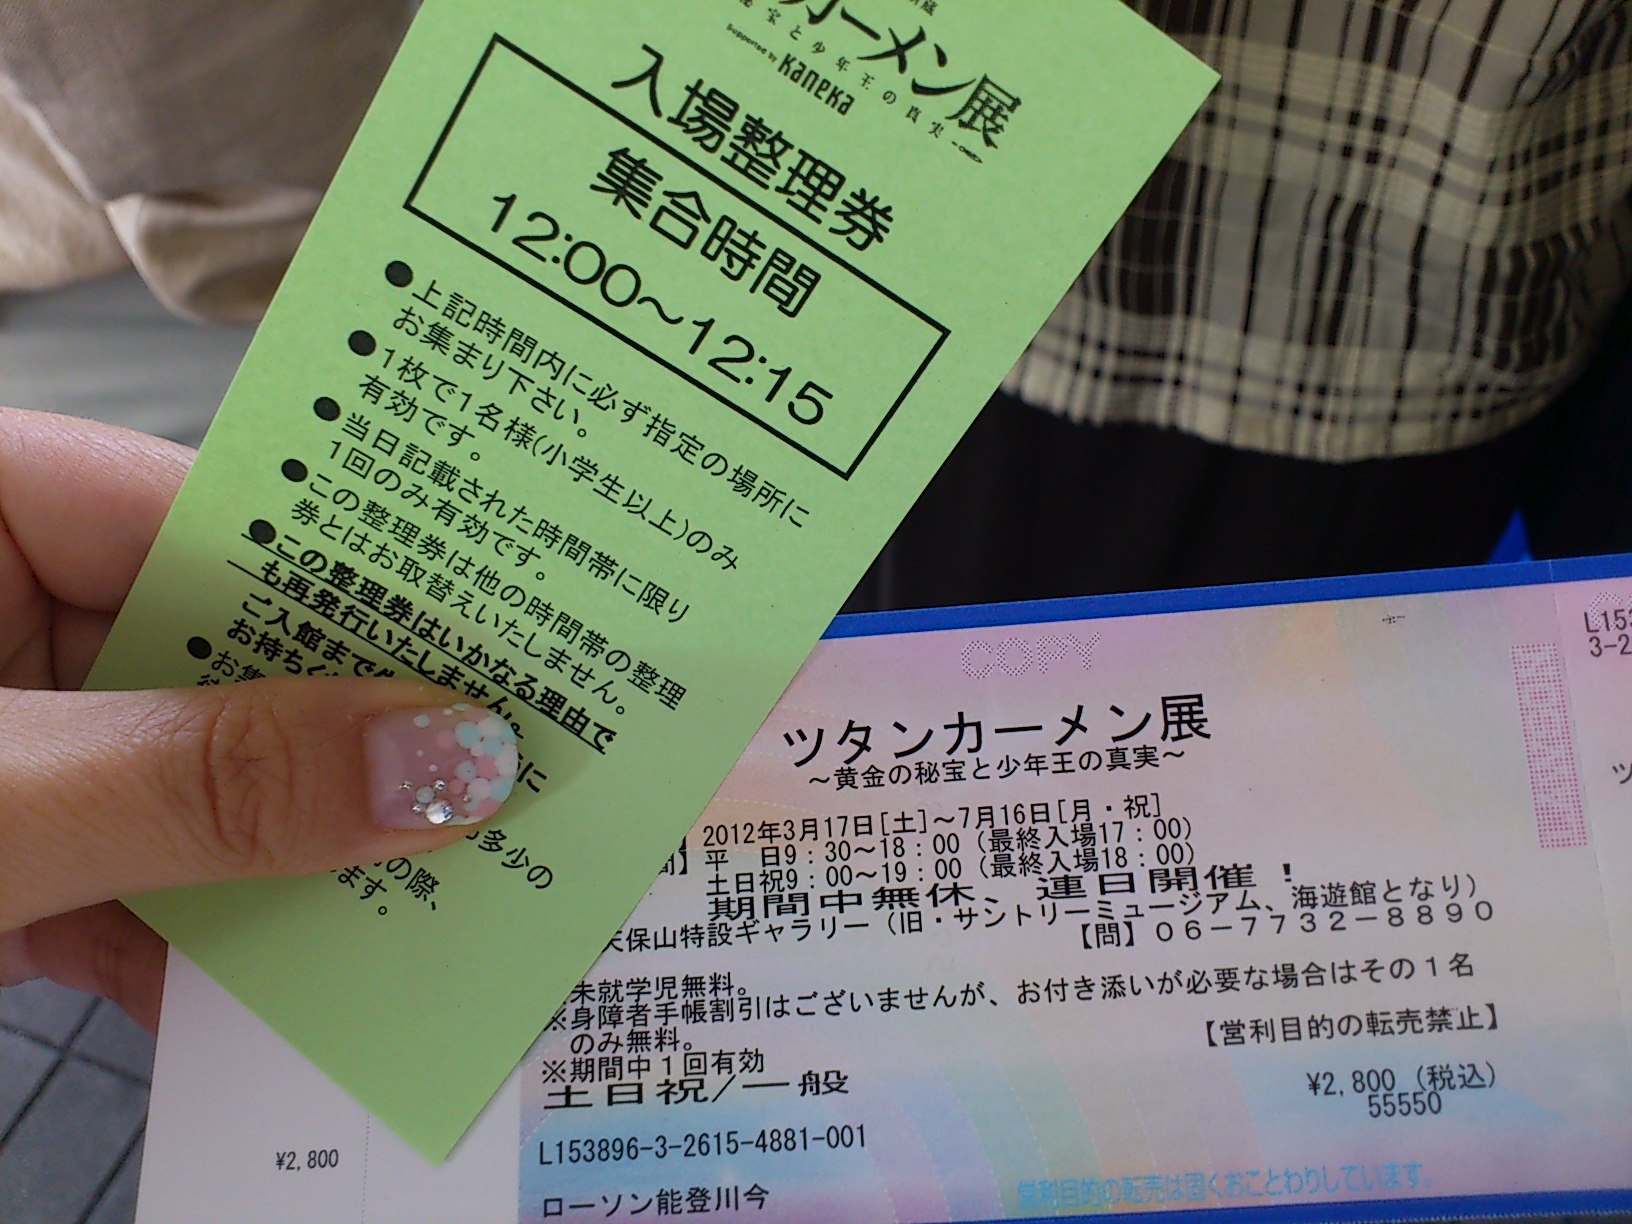 カーメン展
秘宝と少年王の真実
Supported by KANEKA
入場整理券
集合時間
12:00〜12:15
●上記時間内に必ず指定の場所に
お集まり下さい。
●1枚で1名様(小学生以上)のみ
有効です。
●当日記載された時間帯に限り
1回のみ有効です。
●この整理券は他の時間帯の整理
券とはお取替えいたしません。
●この整理券はいかなる理由で
も再発行いたしません。
ご入館まで
お持ち
に
●お集
多少の
の際、
ます。
COPY
ツタンカーメン展
〜黄金の秘宝と少年王の真実〜
2012年3月17日[土]〜7月16日[月・祝]
間】平　日9：30〜18：00（最終入場17：00）
土日祝9：00〜19：00（最終入場18：00）
期間中無休、連日開催！
天保山特設ギャラリー（旧・サントリーミュージアム、海遊館となり）
【問】06－7732－8890
未就学児無料。
※身障者手帳割引はございませんが、お付き添いが必要な場合はその1名
のみ無料。
【営利目的の転売禁止】
※期間中1回有効
土日祝/一般
¥2,800（税込）
55550
L153896-3-2615-4881-001
ローソン能登川今
営利目的の転売は固くおことわりしています。
¥2,800
L153
3-2
ツ